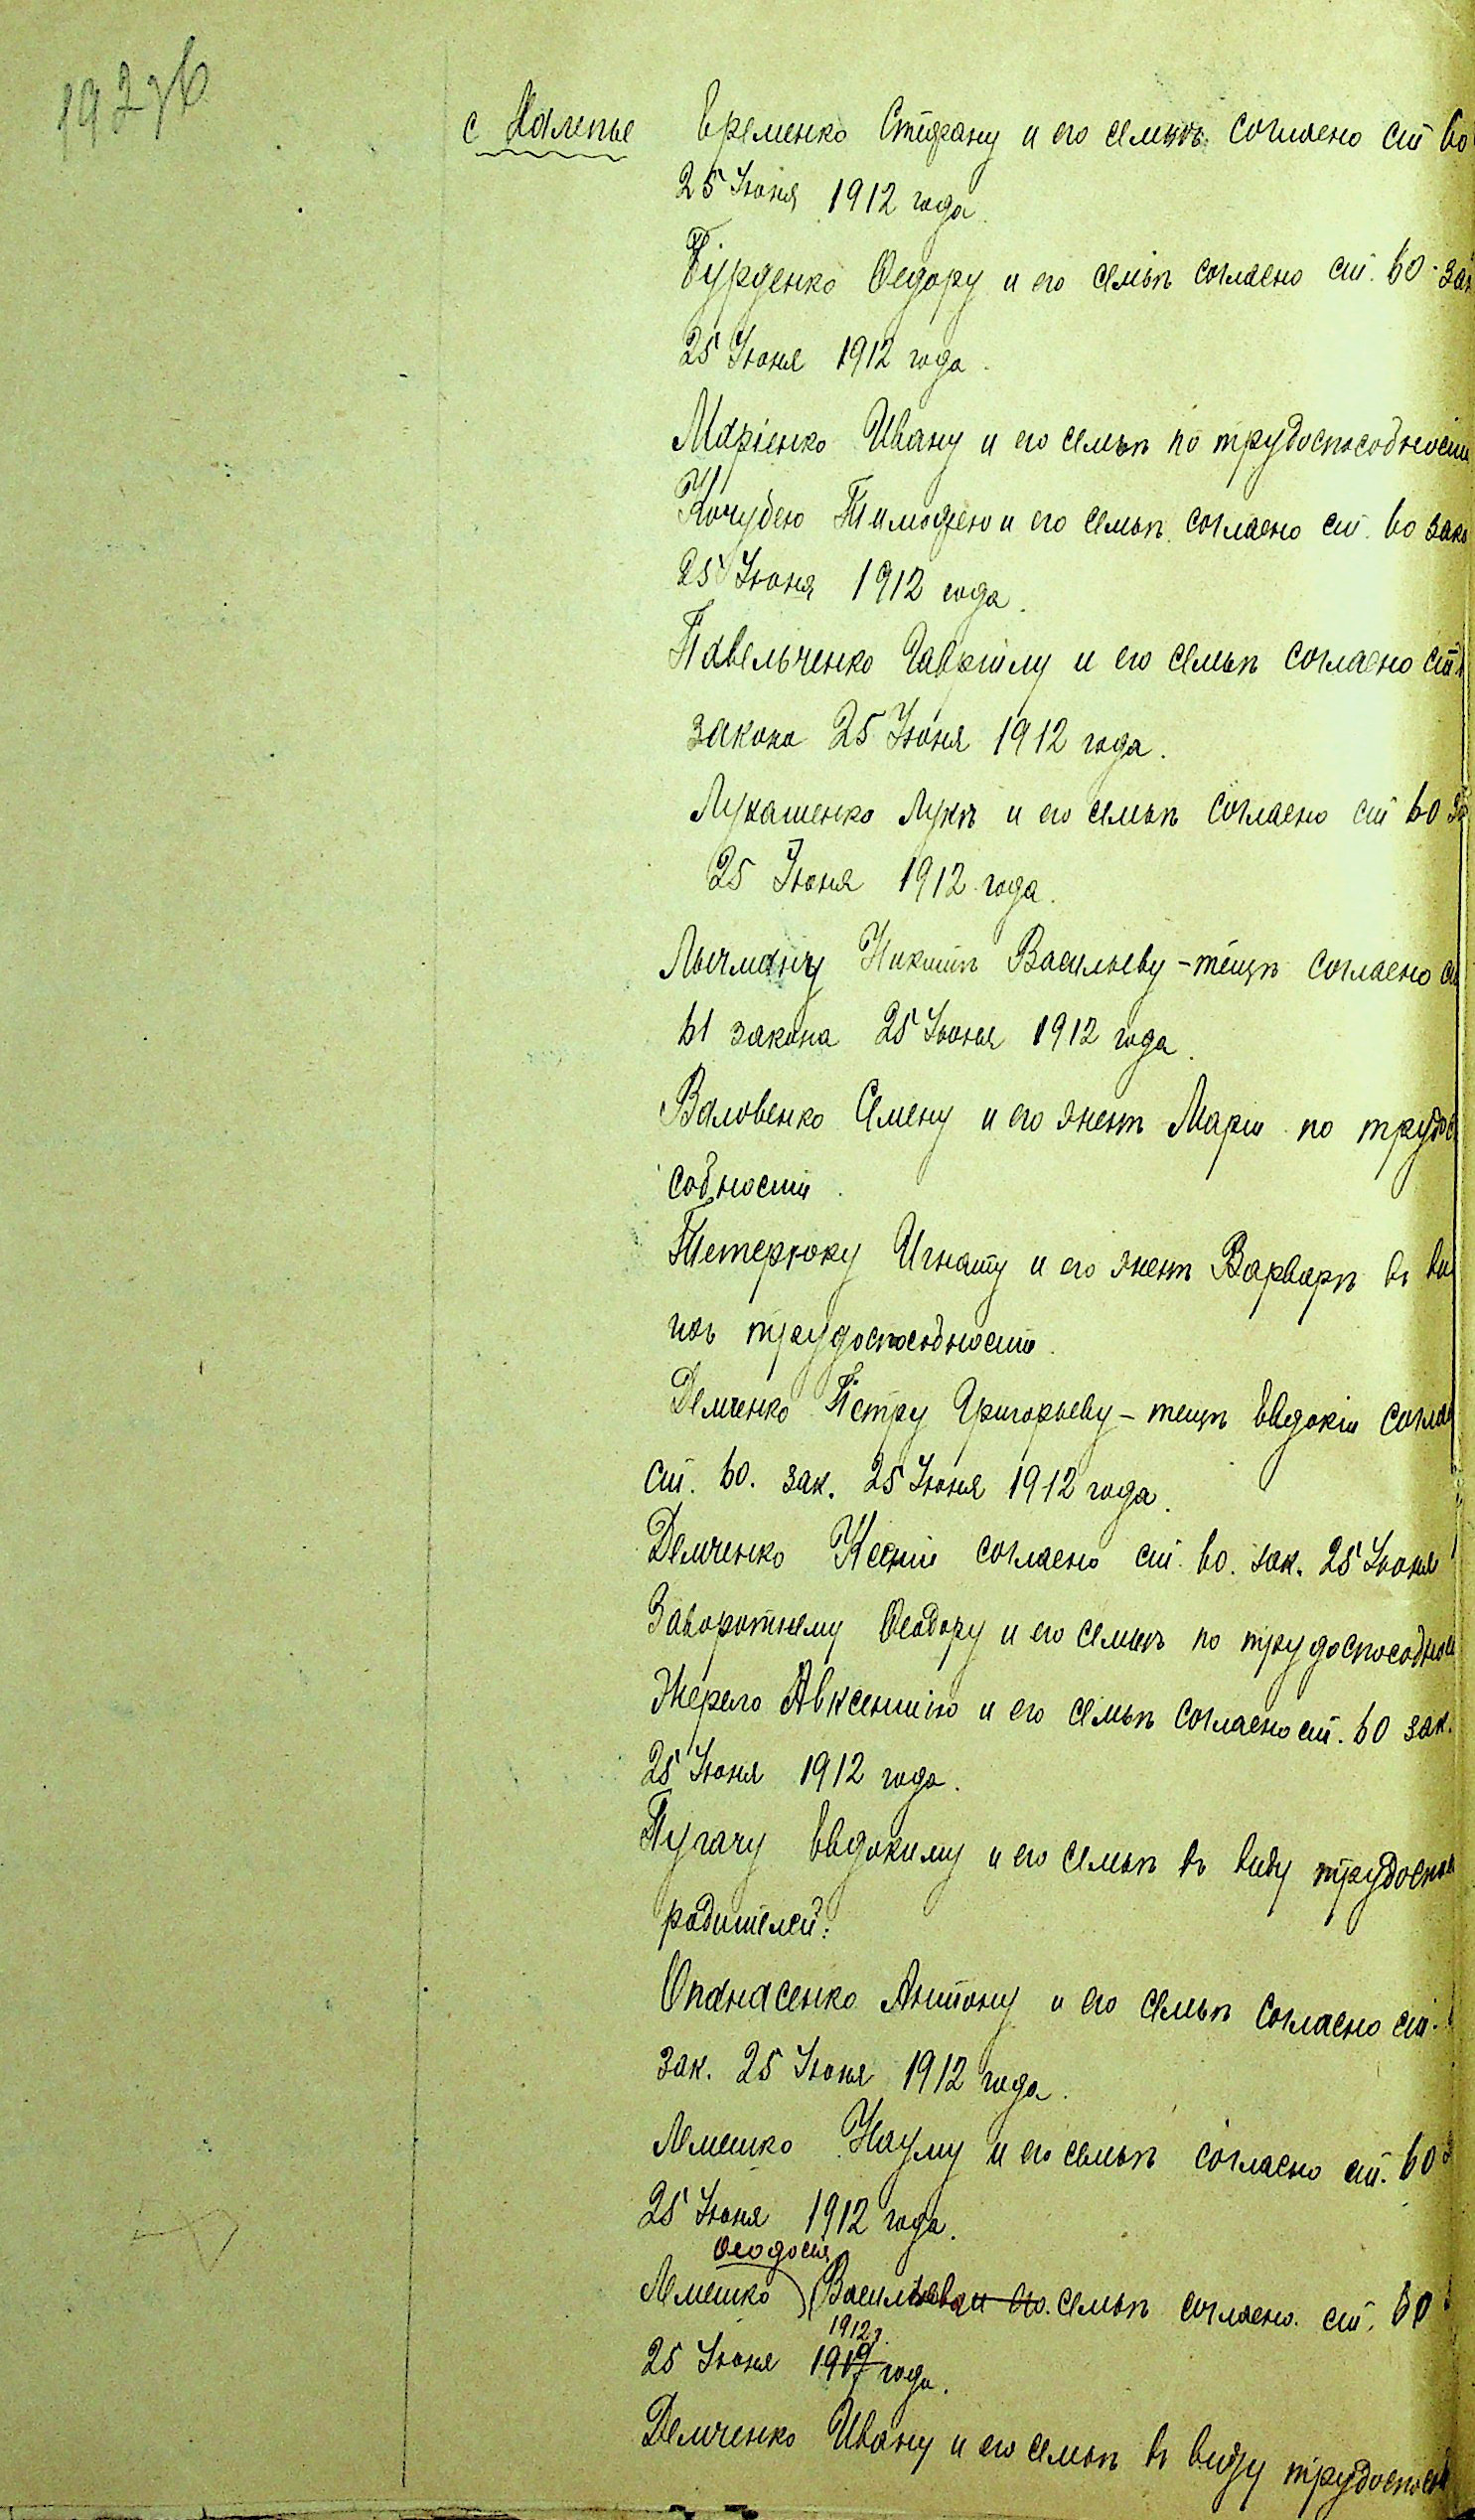 с Халепье Еременко Стефану и его семьѣ согласно ст 60
25 Іюня 1912 года.
Бурденко Ѳедору и его семьѣ согласно ст. 60 зак
25 Іюня 1912 года.
Маріенко Ивану и его семьѣ по трудоспособности
Кочубею Тимофею и его семьѣ согласно ст. 60 зако
25 Іюня 1912 года.
Павельченко Гаврiилу и его семьѣ согласно ст
закона 25 Іюня 1912 года.
Лукашенко Лукѣ и его семьѣ согласно ст 60
25 Іюня 1912 года.
Никитѣ Васильеву - тещѣ согласно ст
61 закона 25 Іюня 1912 года.
Валовенко Семену и его женѣ Маріи по трудос
собности.
Тетерюку Игнату и его женѣ Варварѣ въ ви
трудоспособности.
Демченко Петру Григорьеву - тещѣ Евдокіи соглас
ст. 60. зак. 25 Іюня 1912 года.
Демченко Ксеніи согласно ст. 60. зак. 25 Іюня 1
Заворотнему Ѳеодору и его семьѣ по трудоспособнос
Жерело Авксентію и его семьѣ согласно ст. 60 зак.
25 Іюня 1912 года.
Пугачу Евдокиму и его семьѣ въ виду трудоспос
родителей.
Опанасенко Антону и его семьѣ согласно ст.
зак. 25 Іюня 1912 года.
Лемешко Науму и его семьѣ согласно ст. 60 з
25 Іюня 1912 года.
Ѳеодосія
Лемешко Васильева и его семьѣ согласно. ст. 60
1912 г.
25 Іюня 1917 года.
Демченко Ивану и его семьѣ въ виду трудоспособ